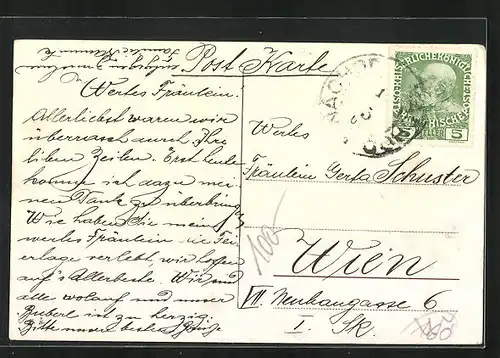 Post Karte
Wertes Fräulein!
Allerliebst waren wir
überrascht durch Ihre
lieben Zeilen. Erst heute
komme ich dazu mei-
nen Dank zu überbring
Wie haben Sie mein
wertes Fräulein die Fei-
ertage verlebt, wir hoffen
auf's Allerbeste. Wir sind
alle wolauf und unser
Buberl ist zu herzig.
Bitte unsere besten
Wertes
Fräulein Gerta Schuster
Wien
VII. Neubaugasse 6
I. Sk.
100-
HELLER 5